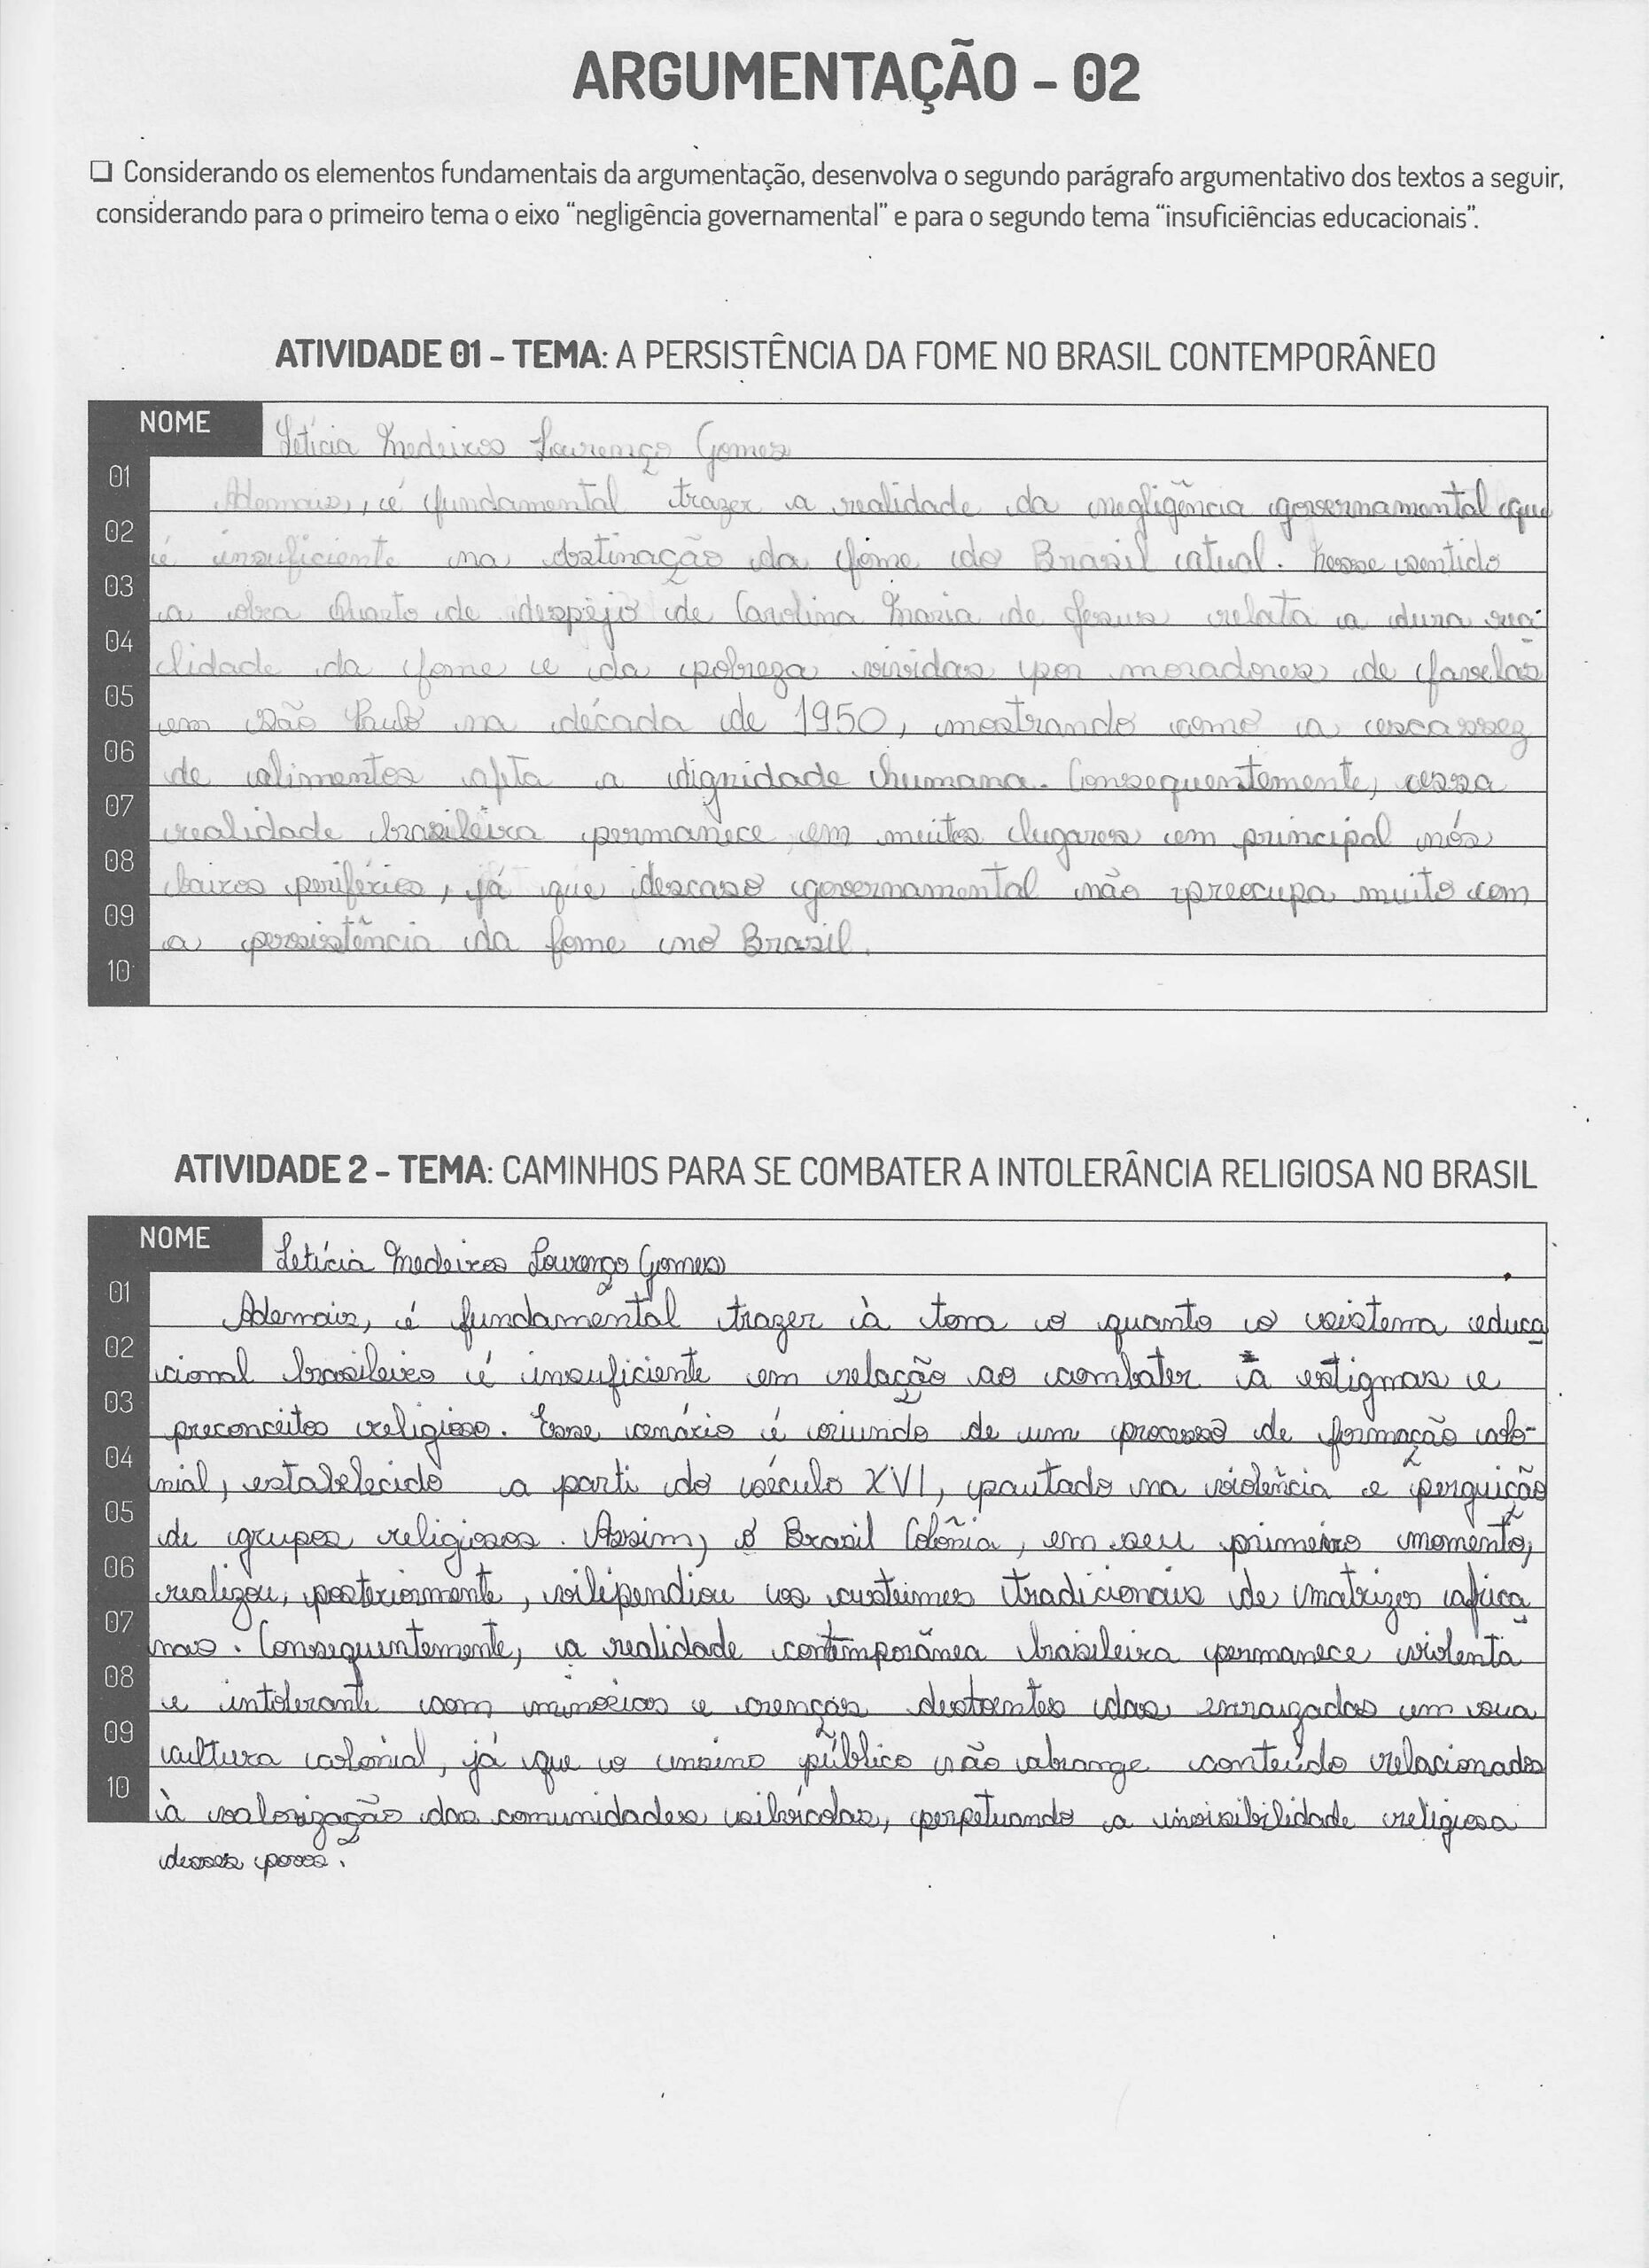 ARGUMENTAÇÃO - 02
❑ Considerando os elementos fundamentais da argumentação, desenvolva o segundo parágrafo argumentativo dos textos a seguir,
considerando para o primeiro tema o eixo “negligência governamental” e para o segundo tema “insuficiências educacionais”.
ATIVIDADE 01 - TEMA: A PERSISTÊNCIA DA FOME NO BRASIL CONTEMPORÂNEO
NOME Letícia Medeiros Lourenço Gomes
01 Ademais, é fundamental trazer a realidade da negligência governamental que
02 é insuficiente na obstinação da fome do Brasil atual. Nesse sentido
03 a obra Quarto de despejo de Carolina Maria de Jesus relata a dura rea-
04 lidade da fome e da pobreza vividas por moradores de favelas
05 em São Paulo na década de 1950, mostrando como a escassez
06 de alimentos afeta a dignidade humana. Consequentemente, essa
07 realidade brasileira permanece em muitos lugares em principal nós
08 bairos periféricos, já que descaso governamental não preocupa muito com
09 a persistência da fome no Brasil.
10
ATIVIDADE 2 - TEMA: CAMINHOS PARA SE COMBATER A INTOLERÂNCIA RELIGIOSA NO BRASIL
NOME Letícia Medeiros Lourenço Gomes
01 Ademais, é fundamental trazer à tona o quanto o sistema educa
02 cional brasileiro é insuficiente em relação ao combater à estigmas e
03 preconceitos religioso. Esse cenário é oriundo de um processo de formação colo-
04 nial, estabelecido a parti do século XVI, pautado na violência e perguição
05 de grupos religiosos. Assim, o Brasil Colônia, em seu primeiro momento,
06 realizou, posteriormente, vilipendiou os custumes tradicionais de matrizes africa
07 nas. Consequentemente, a realidade contemporânea brasileira permanece violenta
08 e intolerante com minorias e crenças destoantes das enraizadas em sua
09 cultura colonial, já que o ensino público não abrange conteúdo relacionados
10 à valorização das comunidades silvícolas, perpetuando a invisibilidade religiosa
desses povos.